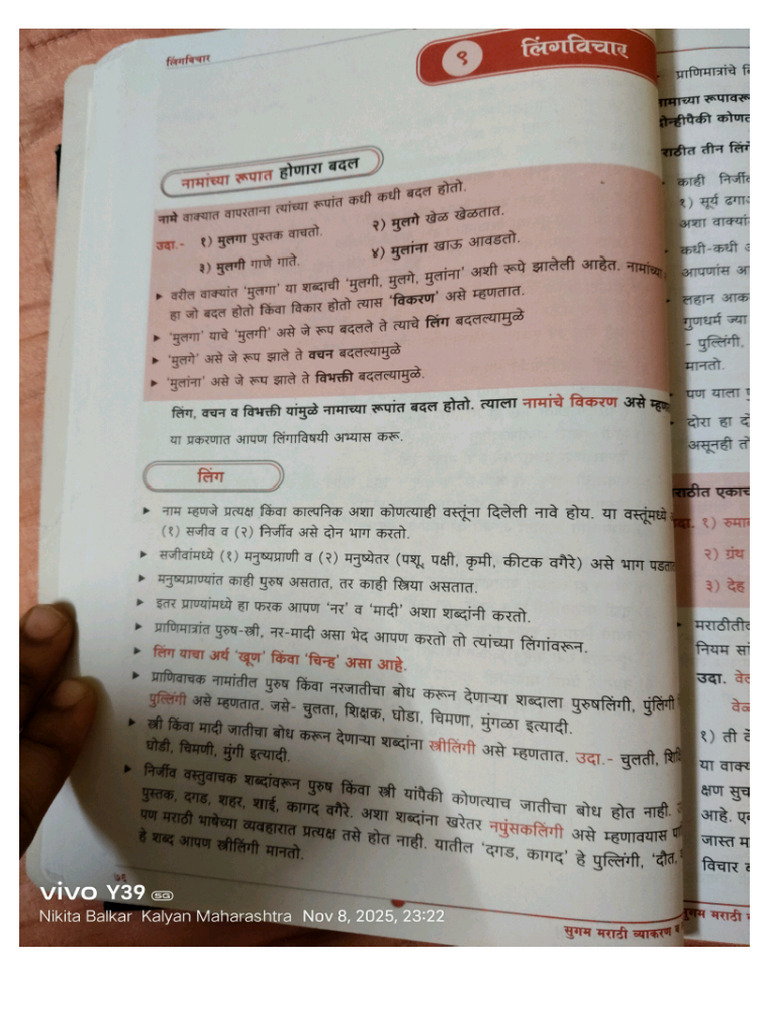 लिंगविचार
९ लिंगविचार
नामांच्या रूपात होणारा बदल
नामे वाक्यात वापरताना त्यांच्या रूपांत कधी कधी बदल होतो.
उदा.- १) मुलगा पुस्तक वाचतो. २) मुलगे खेळ खेळतात.
३) मुलगी गाणे गाते. ४) मुलांना खाऊ आवडतो.
▸ वरील वाक्यांत 'मुलगा' या शब्दाची 'मुलगी, मुलगे, मुलांना' अशी रूपे झालेली आहेत. नामांच्या
हा जो बदल होतो किंवा विकार होतो त्यास 'विकरण' असे म्हणतात.
▸ 'मुलगा' याचे 'मुलगी' असे जे रूप बदलले ते त्याचे लिंग बदलल्यामुळे
▸ 'मुलगे' असे जे रूप झाले ते वचन बदलल्यामुळे
▸ 'मुलांना' असे जे रूप झाले ते विभक्ती बदलल्यामुळे.
लिंग, वचन व विभक्ती यांमुळे नामाच्या रूपांत बदल होतो. त्याला नामांचे विकरण असे
या प्रकरणात आपण लिंगाविषयी अभ्यास करू.
लिंग
▸ नाम म्हणजे प्रत्यक्ष किंवा काल्पनिक अशा कोणत्याही वस्तूंना दिलेली नावे होय. या वस्तूंमध्ये
(१) सजीव व (२) निर्जीव असे दोन भाग करतो.
▸ सजीवांमध्ये (१) मनुष्यप्राणी व (२) मनुष्येतर (पशू, पक्षी, कृमी, कीटक वगैरे) असे भाग पडतात
▸ मनुष्यप्राण्यांत काही पुरुष असतात, तर काही स्त्रिया असतात.
▸ इतर प्राण्यांमध्ये हा फरक आपण 'नर' व 'मादी' अशा शब्दांनी करतो.
▸ प्राणिमात्रांत पुरुष-स्त्री, नर-मादी असा भेद आपण करतो तो त्यांच्या लिंगांवरून.
▸ लिंग याचा अर्थ 'खूण' किंवा 'चिन्ह' असा आहे.
▸ प्राणिवाचक नामांतील पुरुष किंवा नरजातीचा बोध करून देणाऱ्या शब्दाला पुरुषलिंगी, पुंलिंगी
पुल्लिंगी असे म्हणतात. जसे- चुलता, शिक्षक, घोडा, चिमणा, मुंगळा इत्यादी.
▸ स्त्री किंवा मादी जातीचा बोध करून देणाऱ्या शब्दांना स्त्रीलिंगी असे म्हणतात. उदा.- चुलती,
घोडी, चिमणी, मुंगी इत्यादी.
▸ निर्जीव वस्तुवाचक शब्दांवरून पुरुष किंवा स्त्री यांपैकी कोणत्याच जातीचा बोध होत नाही.
पुस्तक, दगड, शहर, शाई, कागद वगैरे. अशा शब्दांना खरेतर नपुंसकलिंगी असे म्हणावयास
पण मराठी भाषेच्या व्यवहारात प्रत्यक्ष तसे होत नाही. यातील 'दगड, कागद' हे पुल्लिंगी, 'दौत,
हे शब्द आपण स्त्रीलिंगी मानतो.
७६
सुगम मराठी व्याकरण व
प्राणिमात्रांचे
नामाच्या
दोन्हीपैकी
मराठीत तीन लिंगे
काही निर्जीव
१) सूर्य
अशा वाक्यां
कधी-कधी
आपणांस
लहान
गुणधर्म ज्या
- पुल्लिंगी,
मानतो.
पण याला
दोरा हा
असूनही तो
मराठीत
१)
२) ग्रंथ
३) देह
नियम
उदा.
१) ती
या
क्षण
आहे.
जास्त
विचार
सुगम मराठी
vivo Y39 5G
Nikita Balkar Kalyan Maharashtra Nov 8, 2025, 23:22